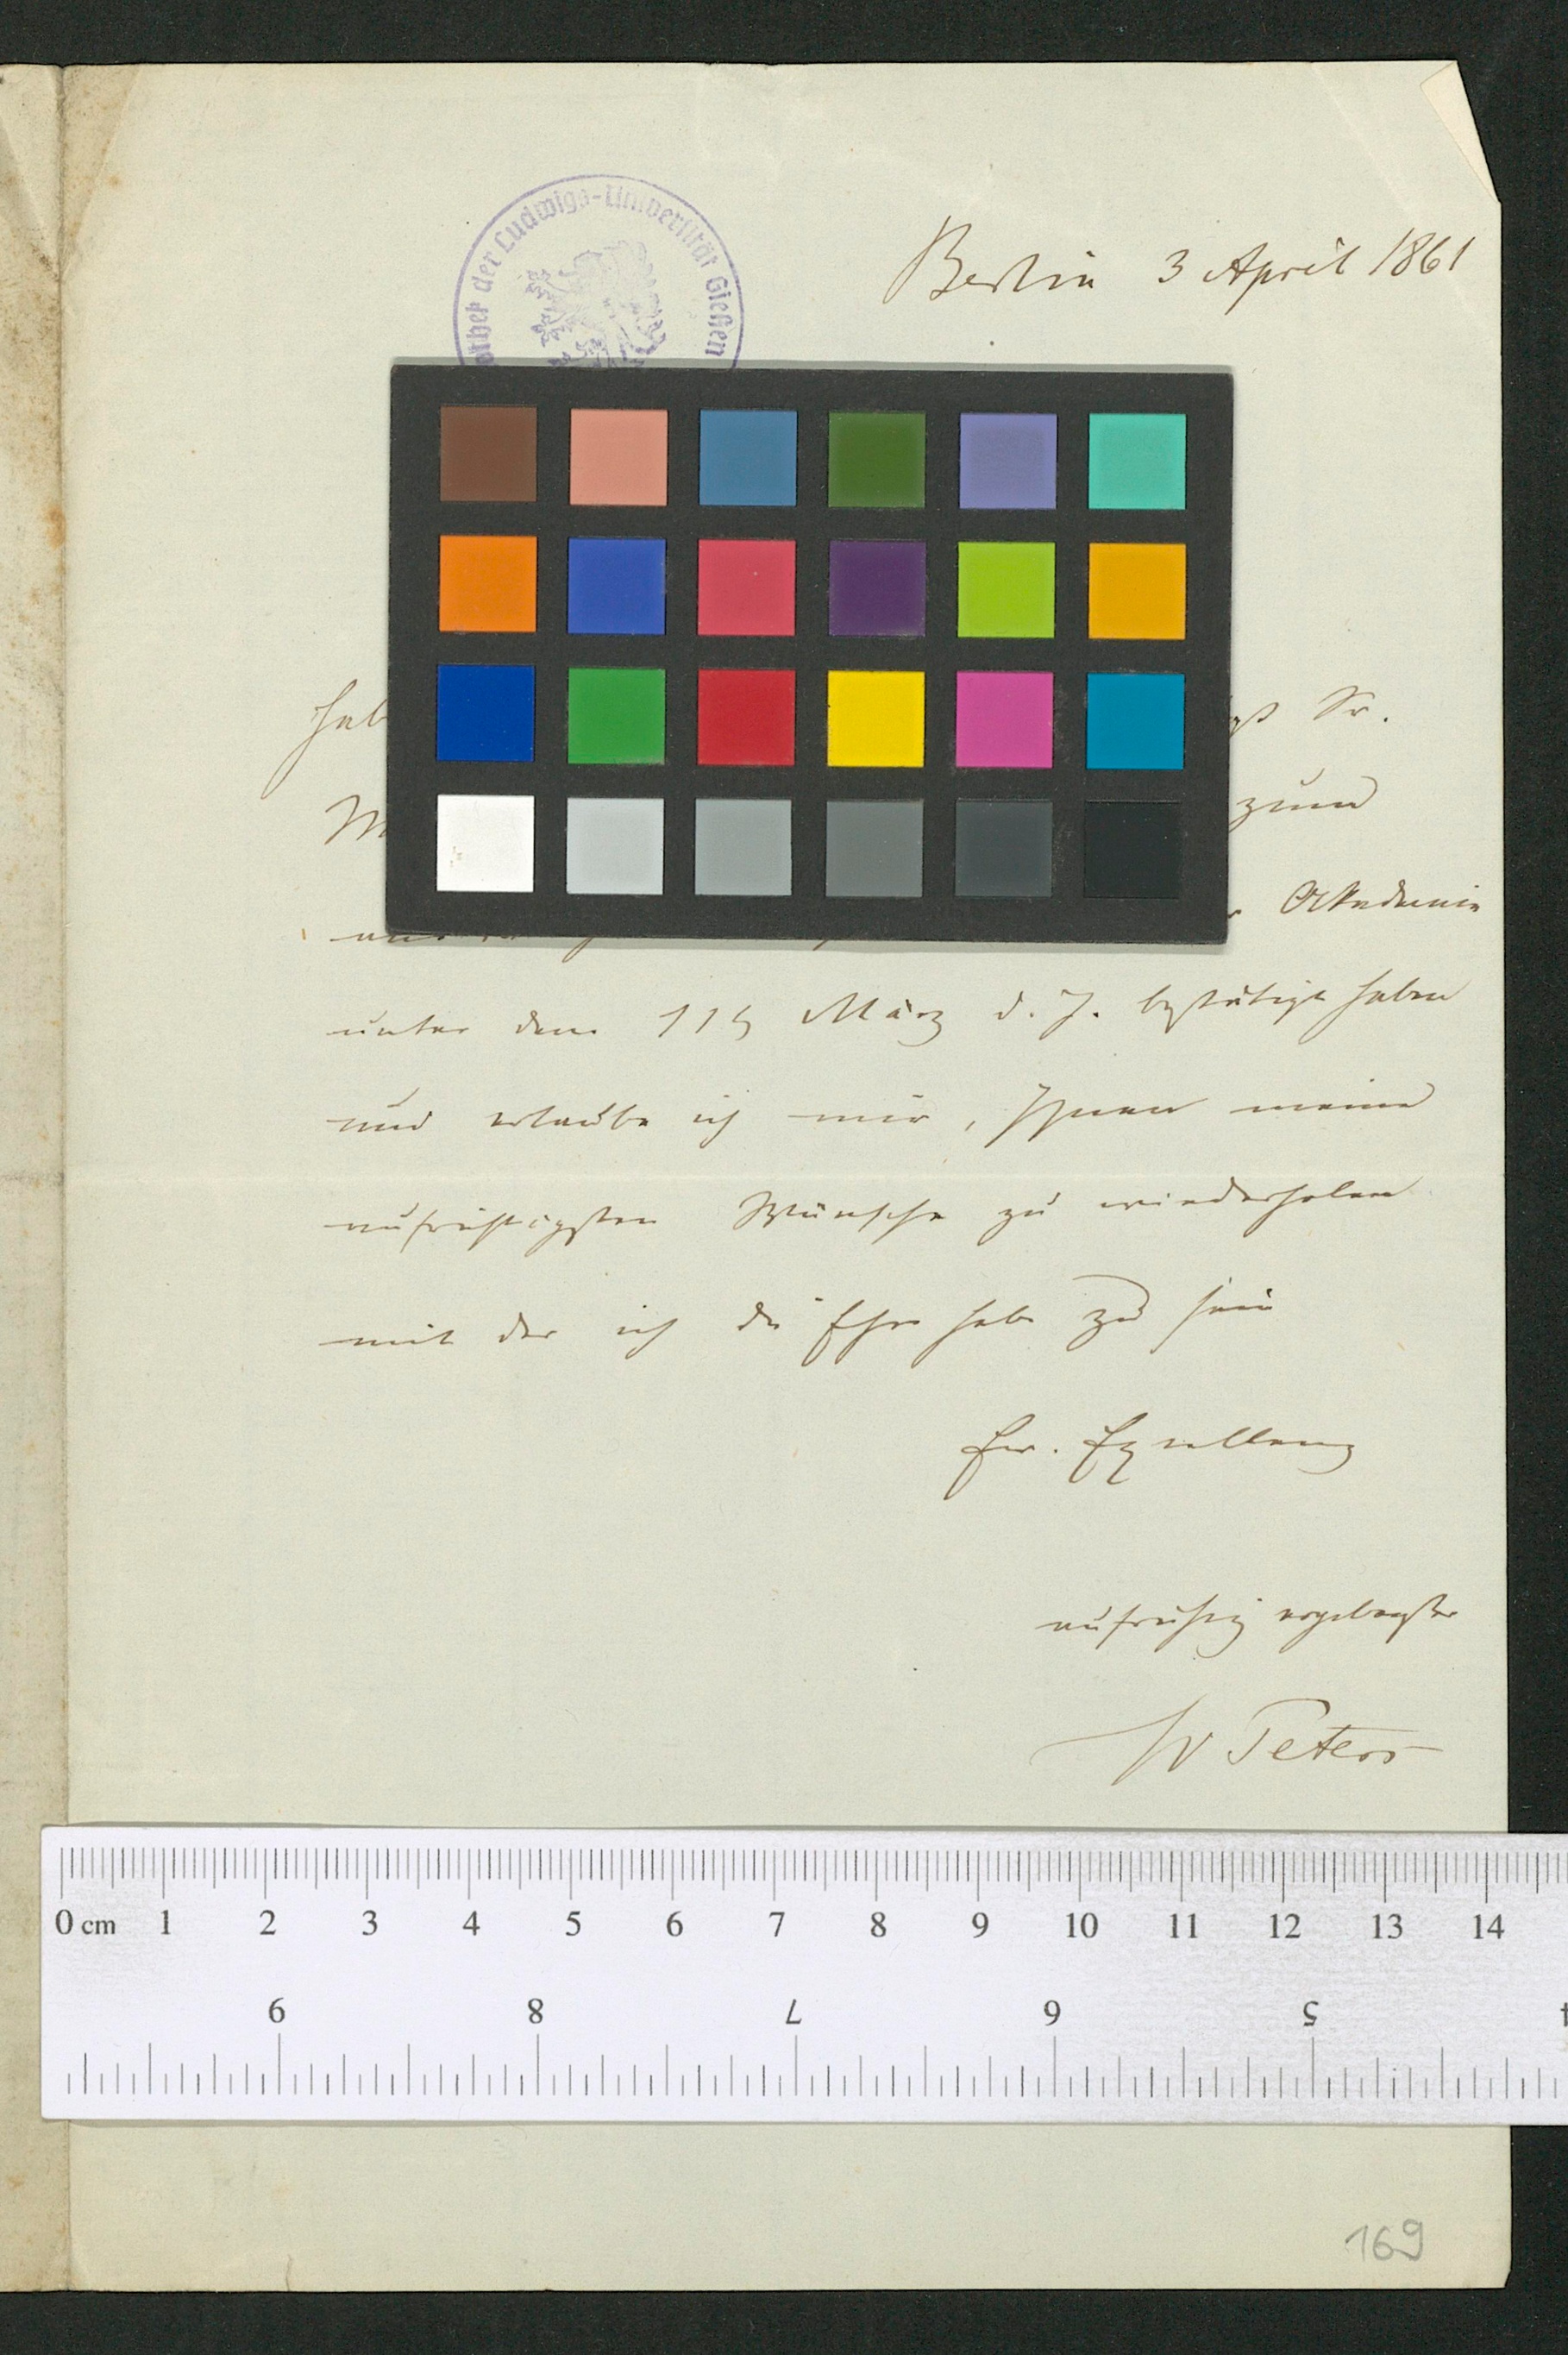 othek der Ludwigs-Universität Gießen
Berlin 3 April 1861
Sr.
zum
Akademie
unter dem 11ten März d. J. bestätigt haben
und erlaube ich mir, Ihnen meine
aufrichtigsten Wünsche zu wiederholen
mit der ich die Ehre habe zu sein
Ew. Exzellenz
aufrichtig ergebenster
W Peters
0 cm 1 2 3 4 5 6 7 8 9 10 11 12 13 14
9 8 7 6 5
169